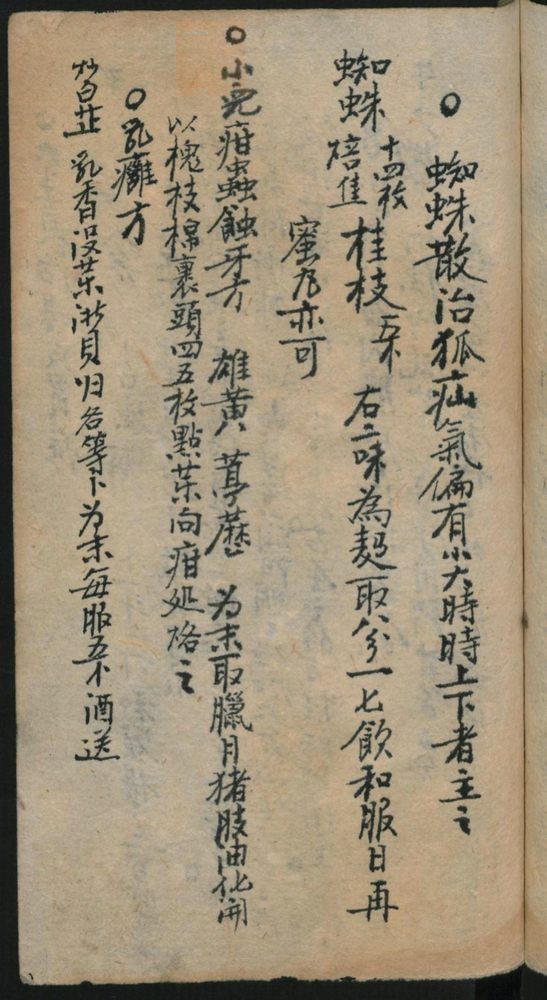 ○ 蜘蛛散治狐疝氣偏有小大時時上下者主之
蜘蛛 十四枚 焙焦 桂枝 右二味為 取八分一匕飲和服日再
蜜丸亦可
○ 小兒疳蟲蝕牙方 雄黃 葶藶 为末取臘月猪脂油化開
以槐枝棉裹頭四五枚點葉向疳処烙之
○ 乳癰方
炒白芷 乳香没葉浙貝归各等卜为末每服 酒送